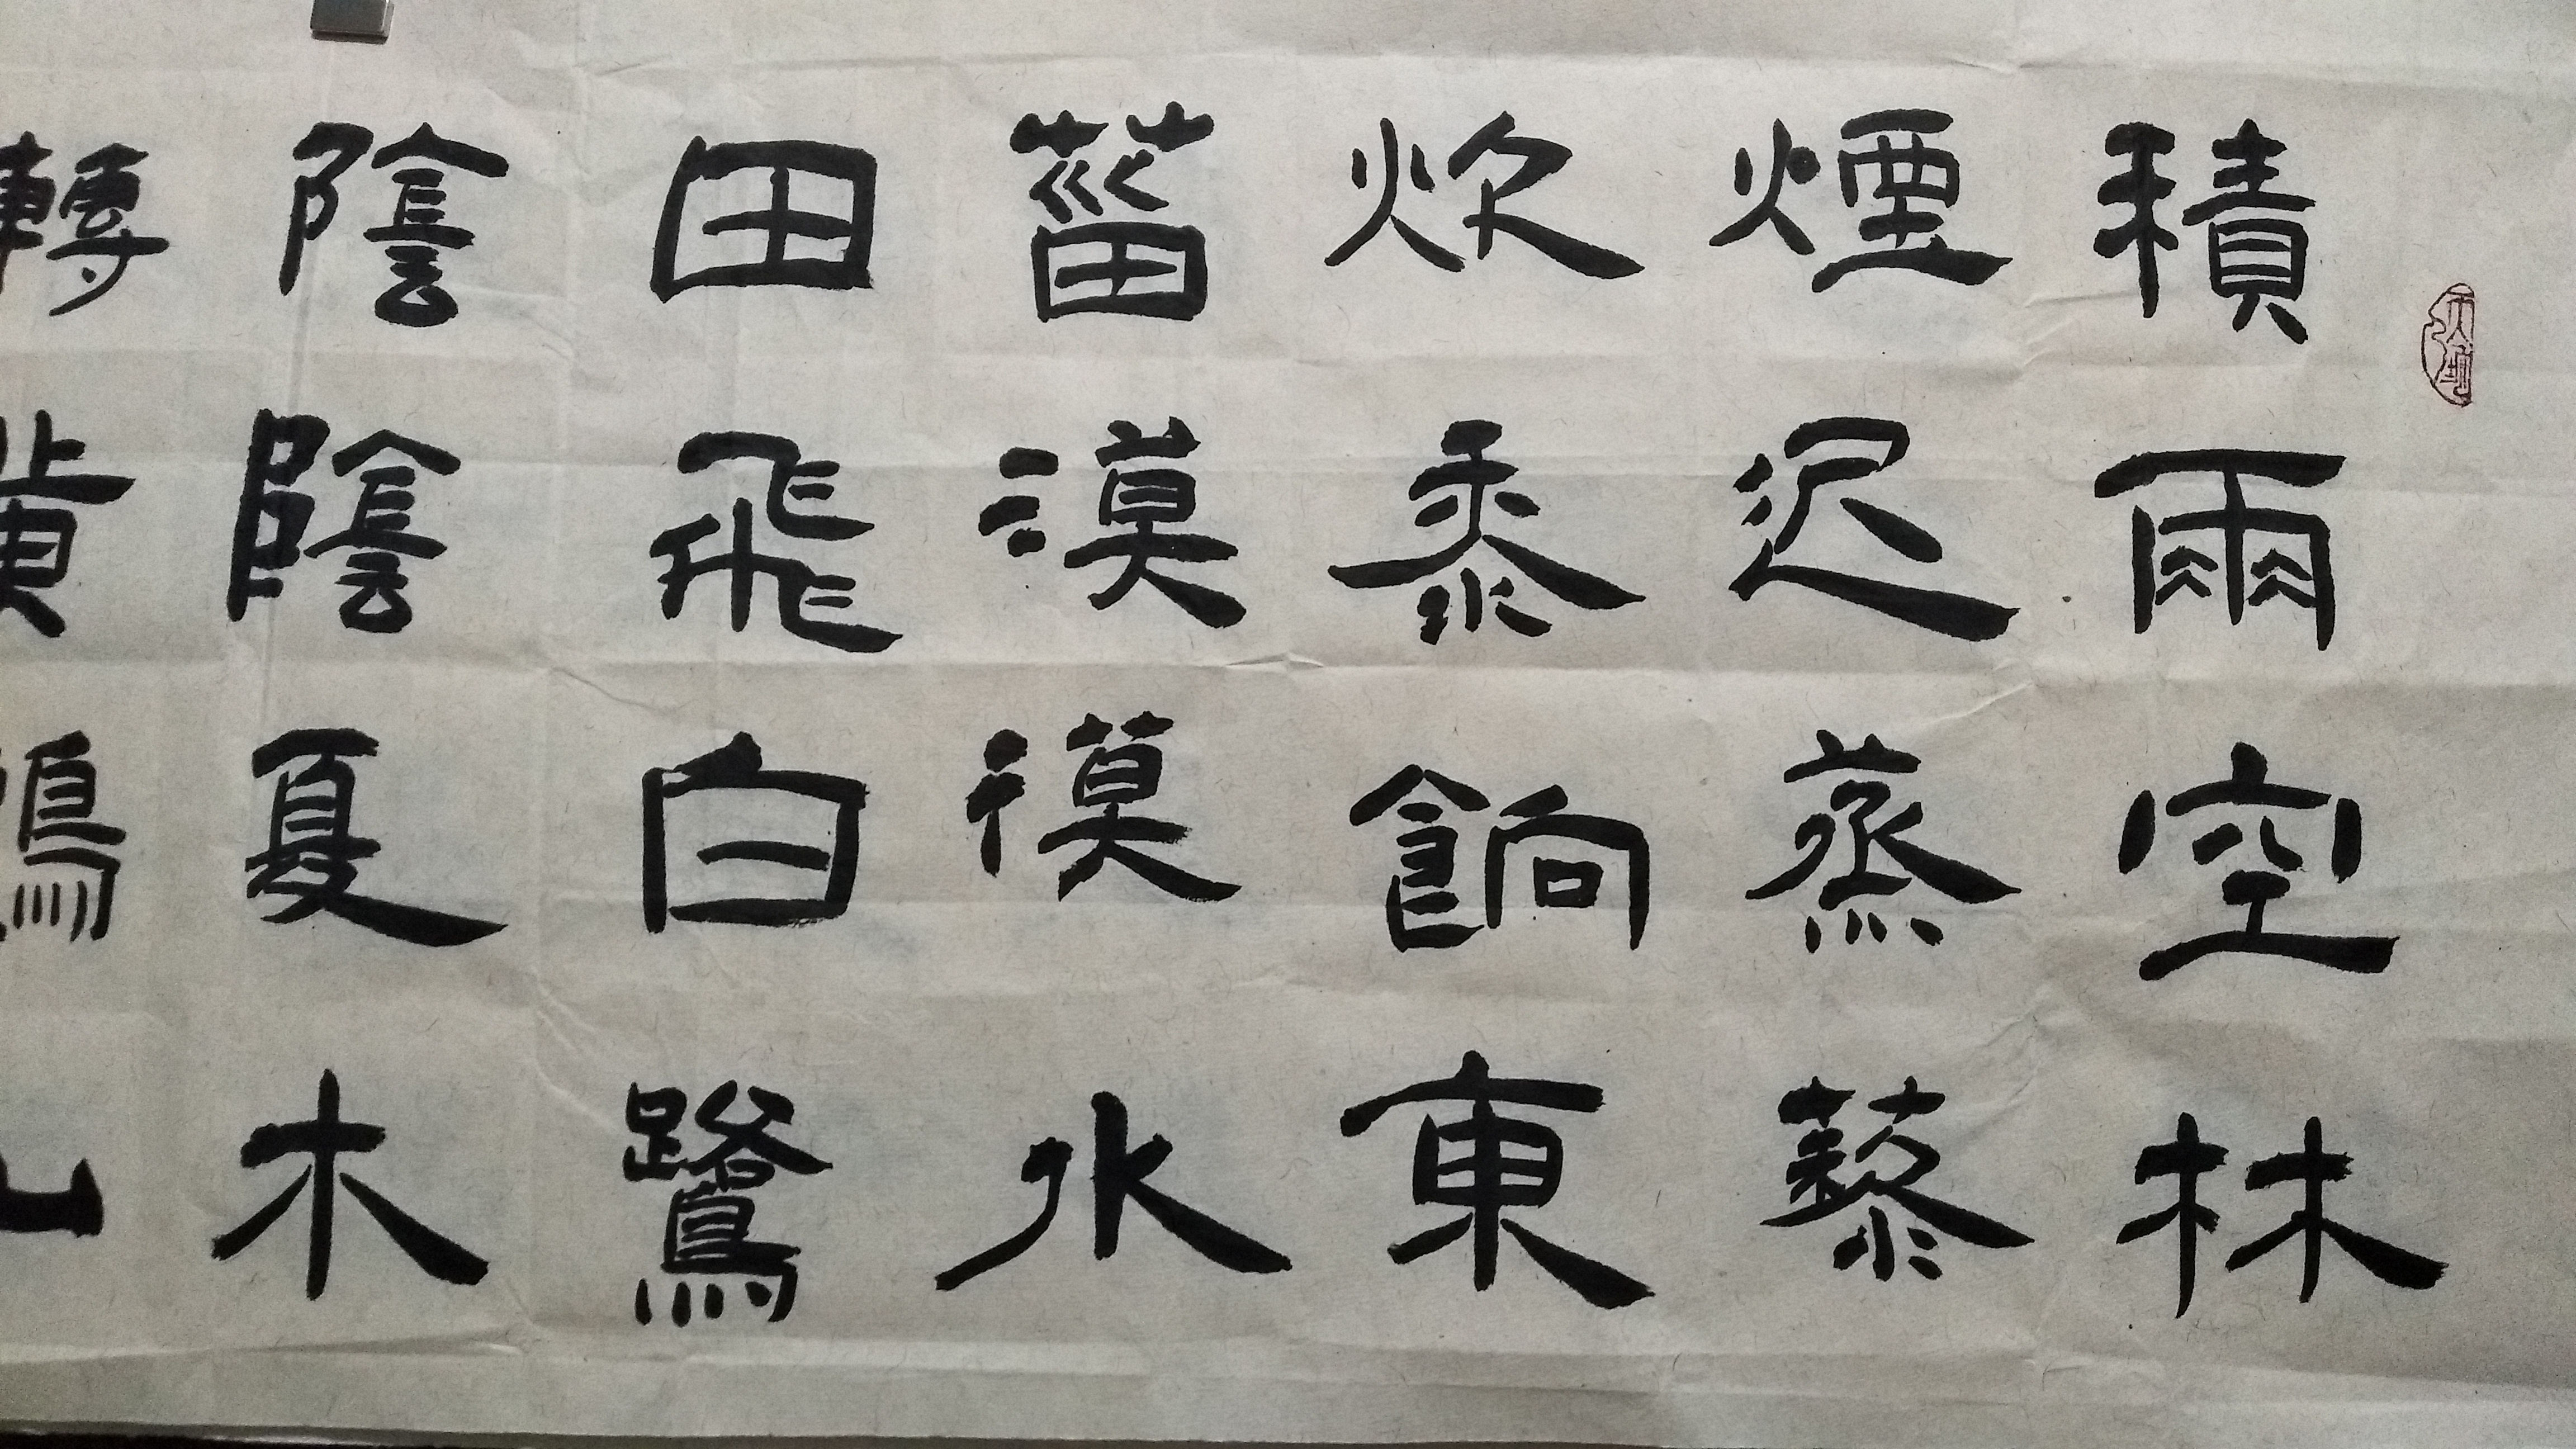 積雨空林
煙迟蒸藜
炊黍餉東
菑漠漠水
田飛白鷺
陰陰夏木
囀黃鸝山